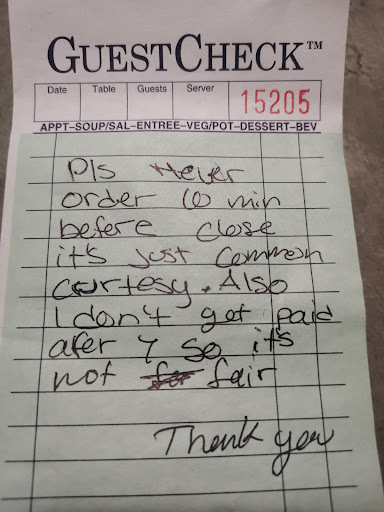 GUESTCHECK™
Date Table Guests Server
15205
APPT-SOUP/SAL-ENTREE-VEG/POT-DESSERT-BEV
Pls Never
order 10 min
before close
it's just common
courtesy. Also
I don't get paid
afer 9 so it's
not for fair
Thank you